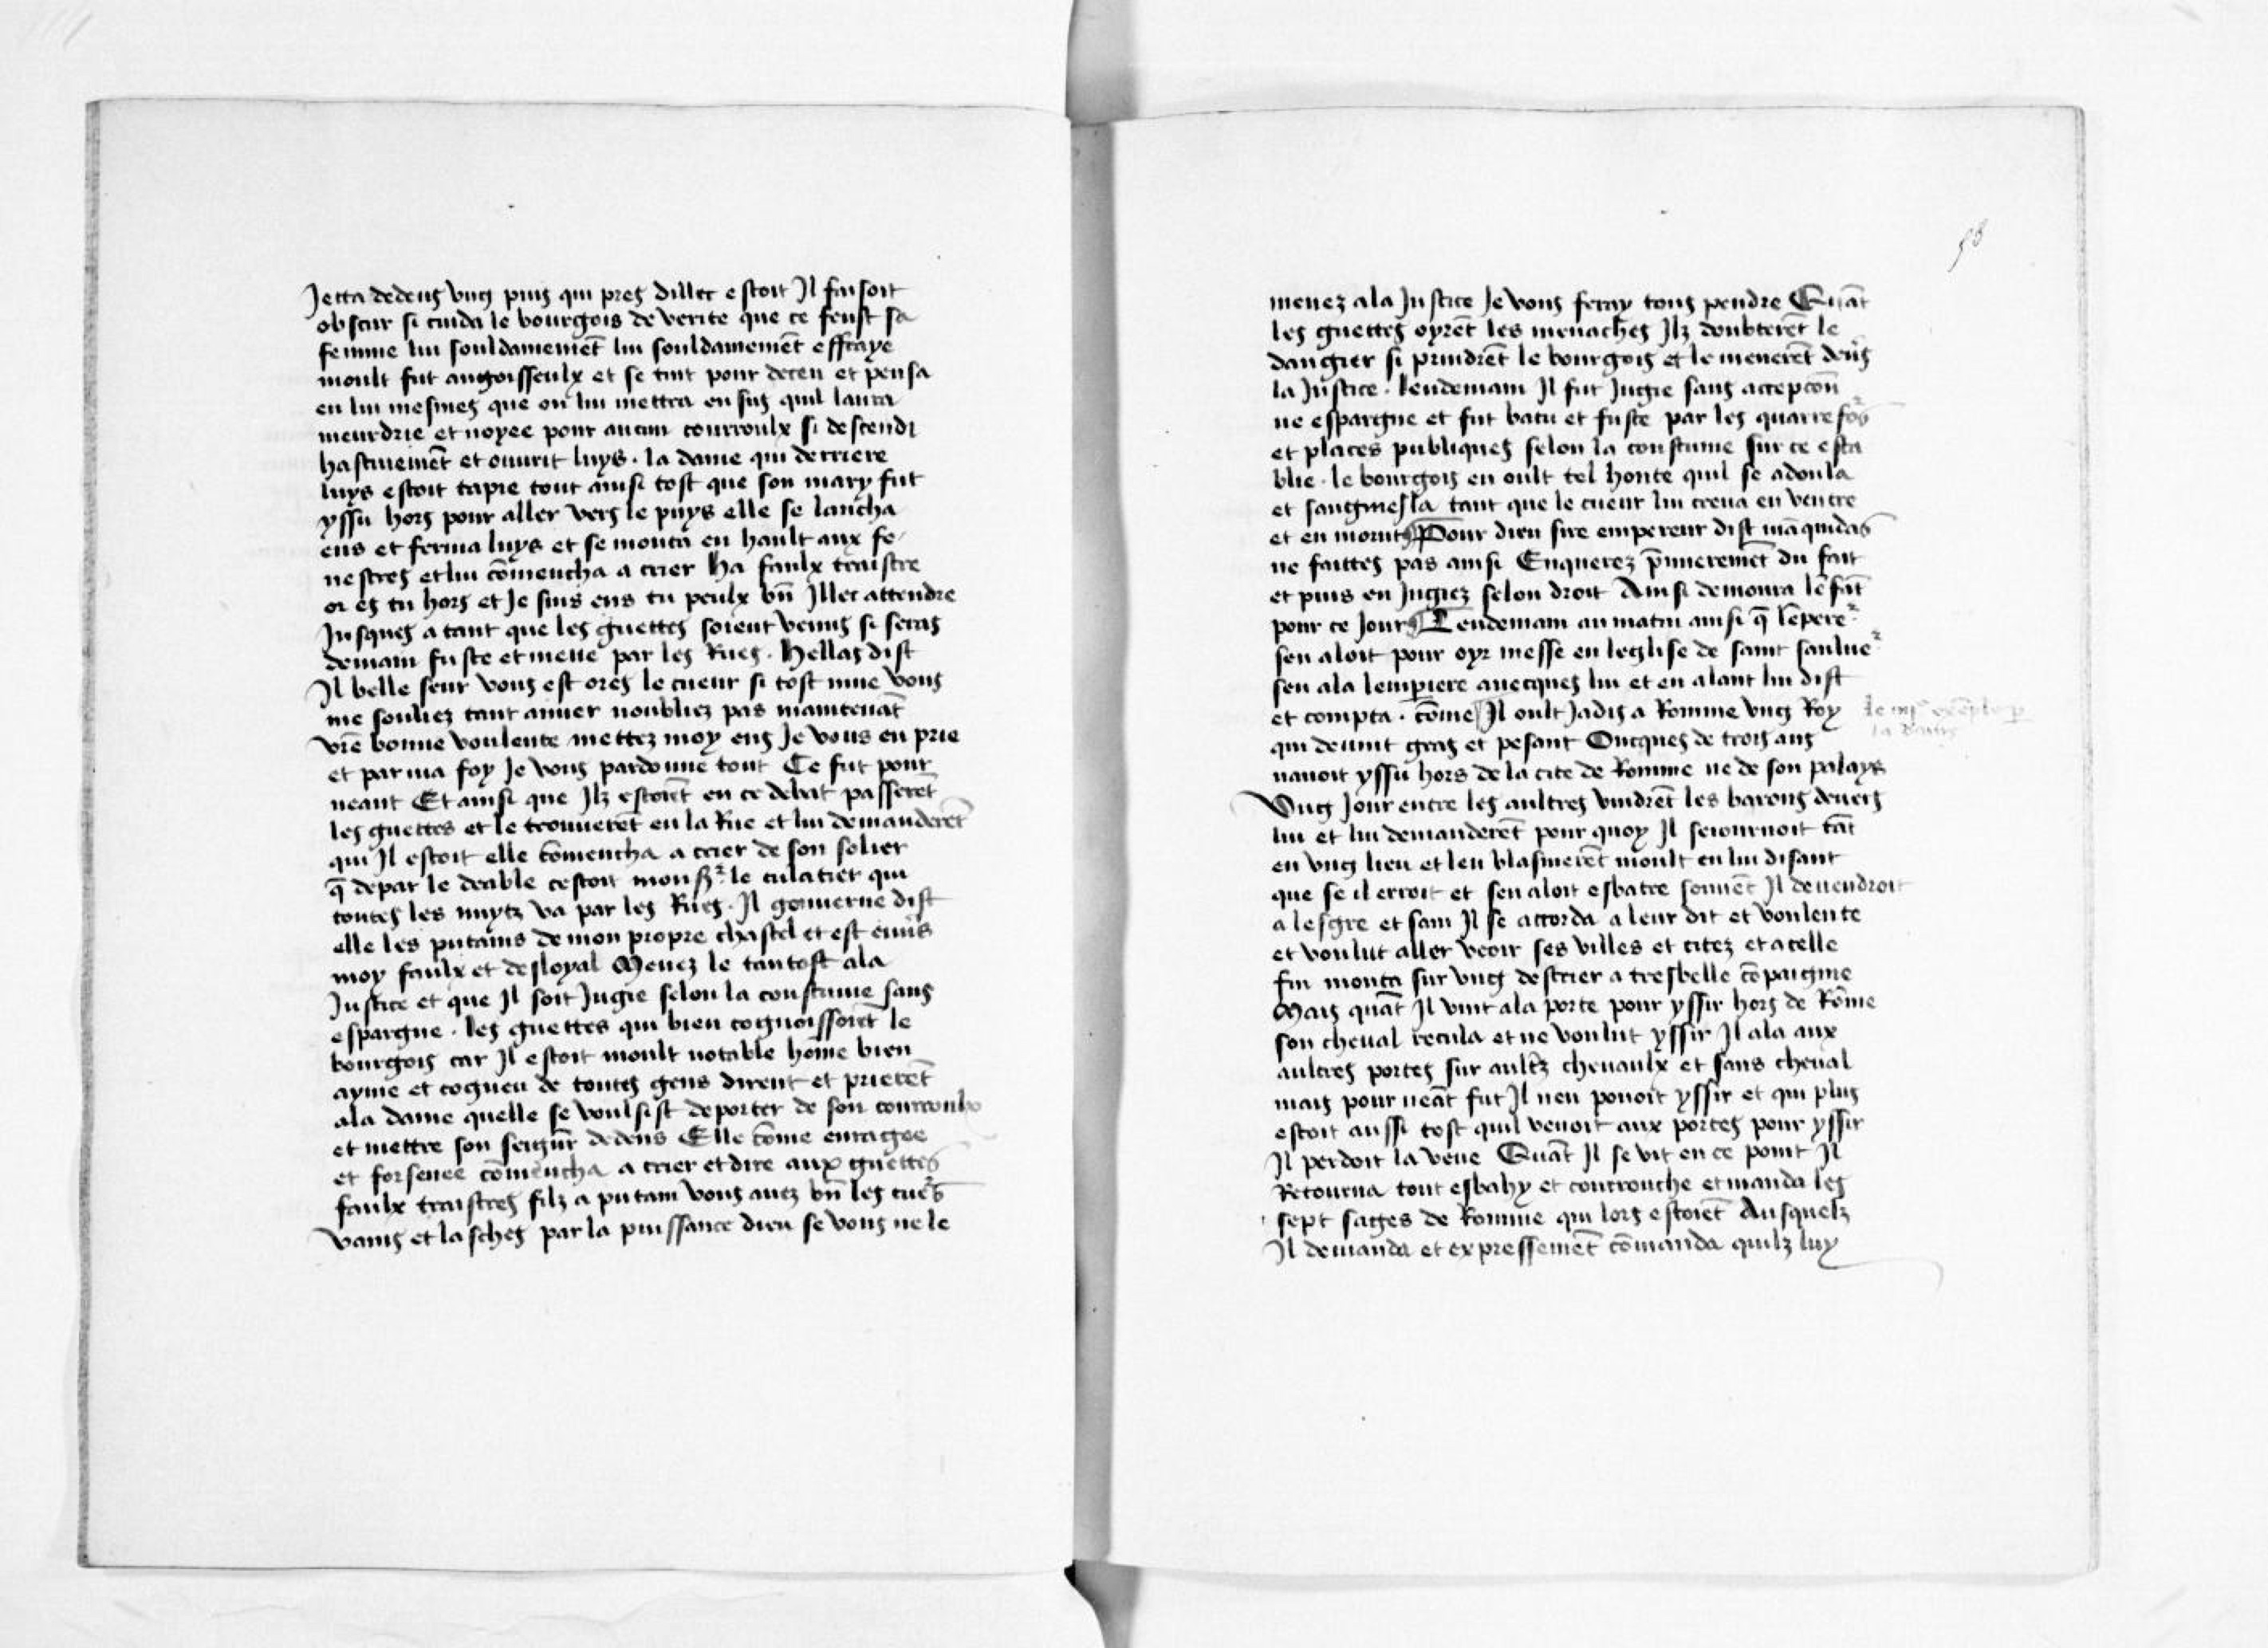 Jetta dedens vng puis qui pres dillec estoit Il faisoit
obscur si cuida le bourgois de verite que ce feust sa
femme lui souldamemēt lui souldamemēt effraye
moult fut angoisseulx et se tint pour deceu et pensa
en lui mesmes que on lui mettra en sus quil laura
meurdrie et noyee pour aucun courroulx si descendi
hastiuemēt et ouurit luys . la dame qui derriere
luys estoit tapie tout ainsi tost que son mary fut
yssu hors pour aller vers le puys elle se lancha
ens et ferma luys et se monta en hault aux fe
nestres et lui cōmencha a crier ha faulx traistre
or es tu hors et Je suis ens tu peulx bn̄ Illec attendre
Jusques a tant que les guettes soient venus si seras
demain fuste et mene par les Rues . hellas dist
Il belle seur vous est ores le cueur si tost mue vous
me souliez tant aimer noubliez pas maintenāt
vrē bonne voulente mettez moy ens Je vous en prie
et par ma foy Je vous pardonne tout Ce fut pour
neant Et ainsi que Ilz estoiēt en ce debat passerēt
les guettes et le trouuerēt en la Rue et lui demanderēt
qui Il estoit elle cōmencha a crier de son solier
q̄ depar le deable cestoit monsr le culatier qui
toutes les nuytz va par les Rues . Il gouuerne dist
elle les putains de mon propre chastel et est enūs
moy faulx et desloyal Menez le tantost ala
Justice et que Il soit Jugie selon la coustume sans
espargne . les guettes qui bien cognoissoiēt le
bourgois car Il estoit moult notable hōme bien
ayme et cogneu de toutes gens dirent et prierēt
ala dame quelle se voulsist deporter de son courroulx
et mettre son seignr̄ dedens Elle cōme enragee
et forsenee cōmencha a crier et dire aux guettes
faulx traistres filz a putain vous auez bn̄ les cuers
vains et lasches par la puissance dieu se vous ne le
58
menez ala Justice Je vous feray tous pendre Quāt
les guettes oyrēt les menaches Ilz doubterēt le
dangier si prindrēt le bourgois et le menerēt deūs
la Justice . lendemain Il fut Jugie sans accepcōn
ne espargne et fut batu et fuste par les quarrefors
et places publiques selon la coustume sur ce esta
blie . le bourgois en oult tel honte quil se adoula
et sangmesla tant que le cueur lui creua en ventre
et en morut Pour dieu sire empereur dist māquidas
ne faittes pas ainsi Enquerez p̄mieremēt du fait
et puis en Jugiez selon droit Ainsi demoura lēfāt
pour ce Jour Lendemain au matin ainsi q̄ lēpere
sen aloit pour oyr messe en leglise de saint saulue
sen ala lemperiere auecques lui et en alant lui dist
et compta . cōme Il oult Jadis a Romme vng Roy
qui deuint gras et pesant Oncques de trois ans
nauoit yssu hors de la cite de Romme ne de son palays
Vng Jour entre les aultres vindrēt les barons deuers
lui et lui demanderēt pour quoy Il seiournoit tāt
en vng lieu et len blasmerēt moult en lui disant
que se il erroit et sen aloit esbatre souuēt Il deuendroit
alesgre et sain Il se accorda a leur dit et voulente
et voulut aller veoir ses villes et citez et a celle
fin monta sur vng destrier a tresbelle cōpaignie
Mais quāt Il vint ala porte pour yssir hors de Rōme
son cheual recula et ne voulut yssir Il ala aux
aultres portes sur aultz cheuaulx et sans cheual
mais pour neāt fut Il nen pouoit yssir et qui plus
estoit aussi tost quil venoit aux portes pour yssir
Il perdoit la veue Quāt Il se vit en ce point Il
Retourna tout esbahy et courrouche et manda les
sept sages de Romme qui lors estoiēt Ausquelz
Il demanda et expressemēt cōmanda quilz luy